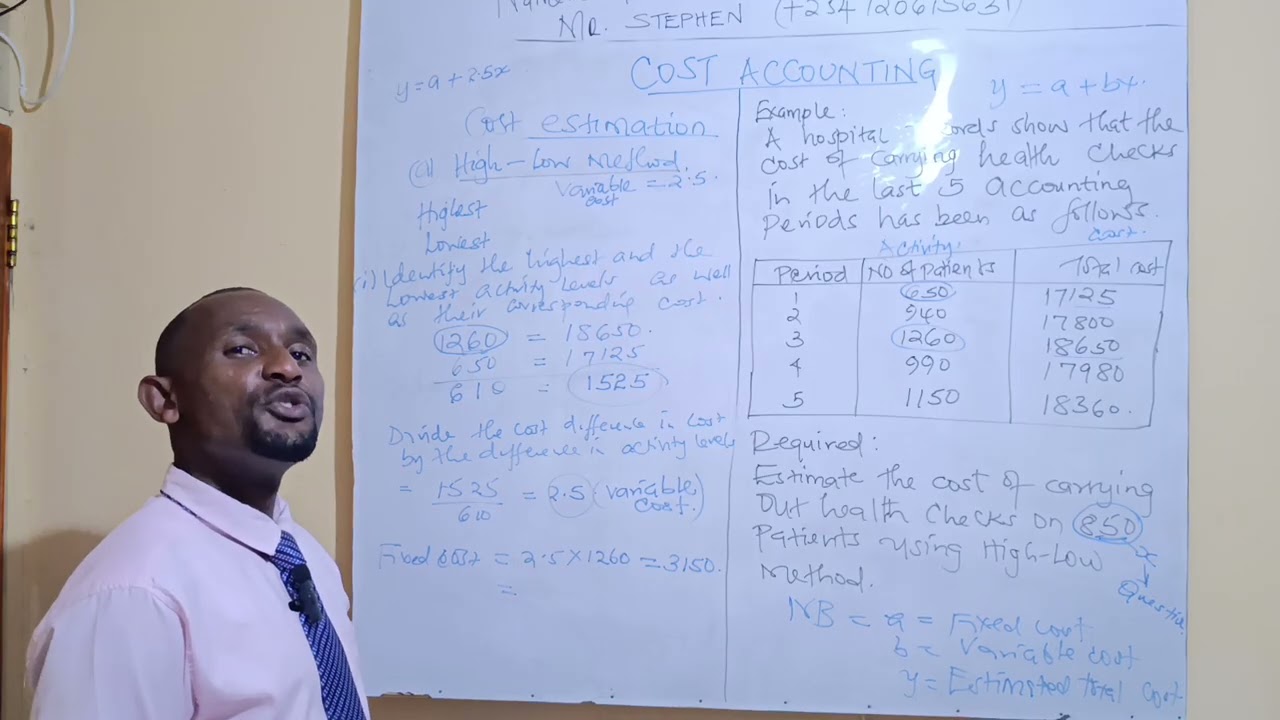 Mr. STEPHEN
COST ACCOUNTING
y = a + 2.5x
Cost estimation
(a) High-Low Method.
Variable cost = 2.5.
Highest
Lowest
(i) Identify the highest and the
Lowest activity levels as well
as their corresponding cost.
1260 = 18650.
650 = 17125
610 = 1525
Divide the cost difference in cost
by the difference in activity levels
= 1525/610 = 2.5 (variable cost.)
Fixed cost = 2.5 x 1260 = 3150.
=
y = a + bx.
Example:
A hospital records show that the
cost of carrying health checks
in the last 5 accounting
Periods has been as follows.
Activity. cost.
Period No of patients Total cost
1 650 17125
2 940 17800
3 1260 18650
4 990 17980
5 1150 18360.
Required:
Estimate the cost of carrying
Out health checks on 850
Patients using High-Low
Method.
x
NB = a = Fixed cost
b = Variable cost
y = Estimated total cost